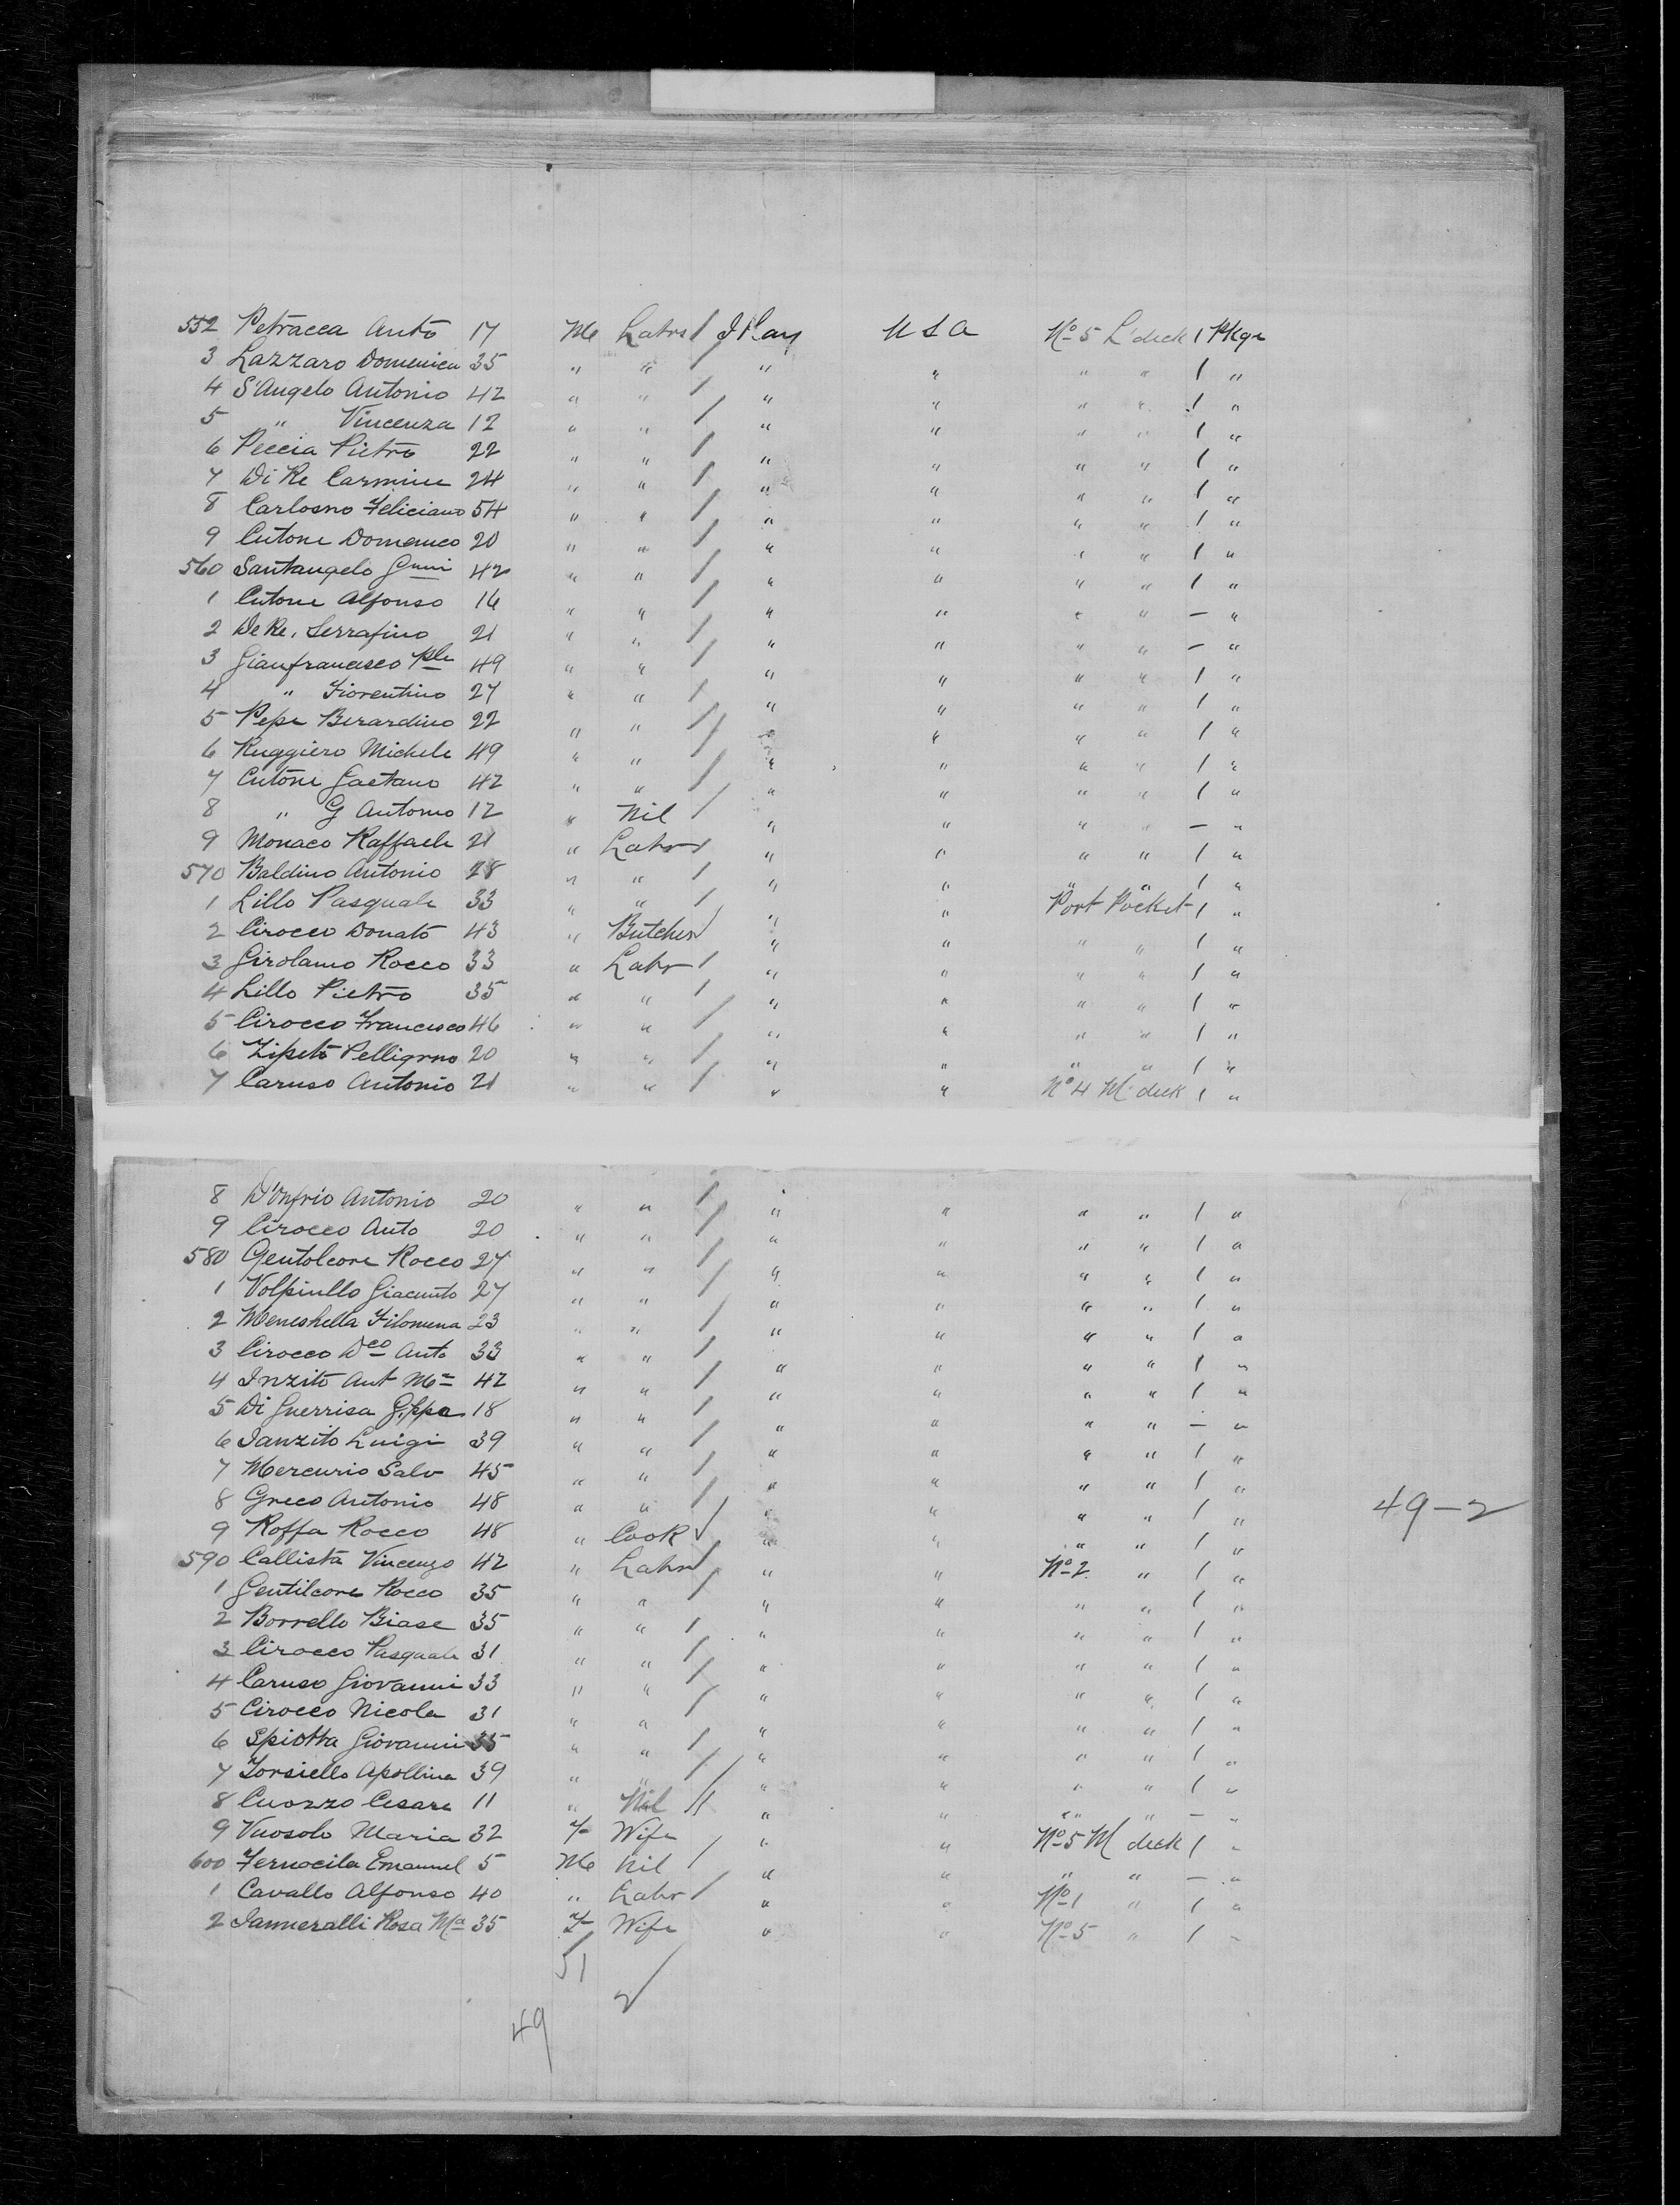 552 Petracca Anto 17 Me Labrs / Italy U S A No 5 L' deck 1 Pkge
3 Lazzaro Domenica 35 " " / " " " " 1 "
4 S'Angelo Antonio 42 " " / " " " " 1 "
5 " Vincenza 12 " " / " " " " 1 "
6 Peccia Pietro 22 " " / " " " " 1 "
7 Di Re Carmine 24 " " / " " " " 1 "
8 Carlosno Feliciano 54 " " / " " " " 1 "
9 Cutone Domenico 20 " " / " " " " 1 "
560 Santangelo Gnni 42 " " / " " " " 1 "
1 Cutone Alfonso 16 " " / " " " " — "
2 De Re, Serrafino 21 " " / " " " " — "
3 Gianfrancisco Ple 49 " " / " " " " 1 "
4 " Fiorentino 27 " " / " " " " 1 "
5 Pepe Berardino 22 " " / " " " " 1 "
6 Ruggiero Michele 49 " " / " " " " 1 "
7 Cutone Gaetano 42 " " / " " " " 1 "
8 " G Antonio 12 " Nil / " " " " — "
9 Monaco Raffaele 21 " Labr / " " " " 1 "
570 Baldino Antonio 28 " " / " " " " 1 "
1 Lillo Pasquale 33 " " / " " Port Pocket 1 "
2 Cirocco Donato 43 " Butcher / " " " " 1 "
3 Girolamo Rocco 33 " Labr / " " " " 1 "
4 Lillo Pietro 35 " " / " " " " 1 "
5 Cirocco Francisco 46 " " / " " " " 1 "
6 Zipeto Pelligrno 20 " " / " " " " 1 "
7 Caruso Antonio 21 " " / " " No 4 M deck 1 "
8 D'Onfrio Antonio 20 " " / " " " " 1 "
9 Cirocco Anto 20 " " / " " " " 1 "
580 Gentolcore Rocco 27 " " / " " " " 1 "
1 Volpiullo Giacinto 27 " " / " " " " 1 "
2 Meneshella Filomena 23 " " / " " " " 1 "
3 Cirocco Dco Anto 33 " " / " " " " 1 "
4 Inzito Ant Ma 42 " " / " " " " 1 "
5 Di Guerrisa Gppa 18 " " / " " " " — "
6 Ianzito Luigi 39 " " / " " " " 1 "
7 Mercurio Salv 45 " " / " " " " 1 "
8 Greco Antonio 48 " " / " " " " 1 " 49-2
9 Roffa Rocco 48 " Cook / " " " " 1 "
590 Callista Vincenzo 42 " Labr / " " No 2 " 1 "
1 Gentilcore Rocco 35 " " / " " " " 1 "
2 Borrello Biase 35 " " / " " " " 1 "
3 Cirocco Pasquale 31 " " / " " " " 1 "
4 Caruso Giovanni 33 " " / " " " " 1 "
5 Cirocco Nicola 31 " " / " " " " 1 "
6 Spiotta Giovanni 35 " " / " " " " 1 "
7 Torsiello Apollina 39 " " / " " " " 1 "
8 Cuozzo Cesare 11 " Nil // " " " " — "
9 Vuosolo Maria 32 F Wife " " No 5 M deck 1 "
600 Fernocila Emanuel 5 Me Nil / " " " " — "
1 Cavallo Alfonso 40 " Labr / " " No 1 " 1 "
2 Ianneralli Rosa Ma 35 F Wife " " No 5 " 1 "
51
2
49